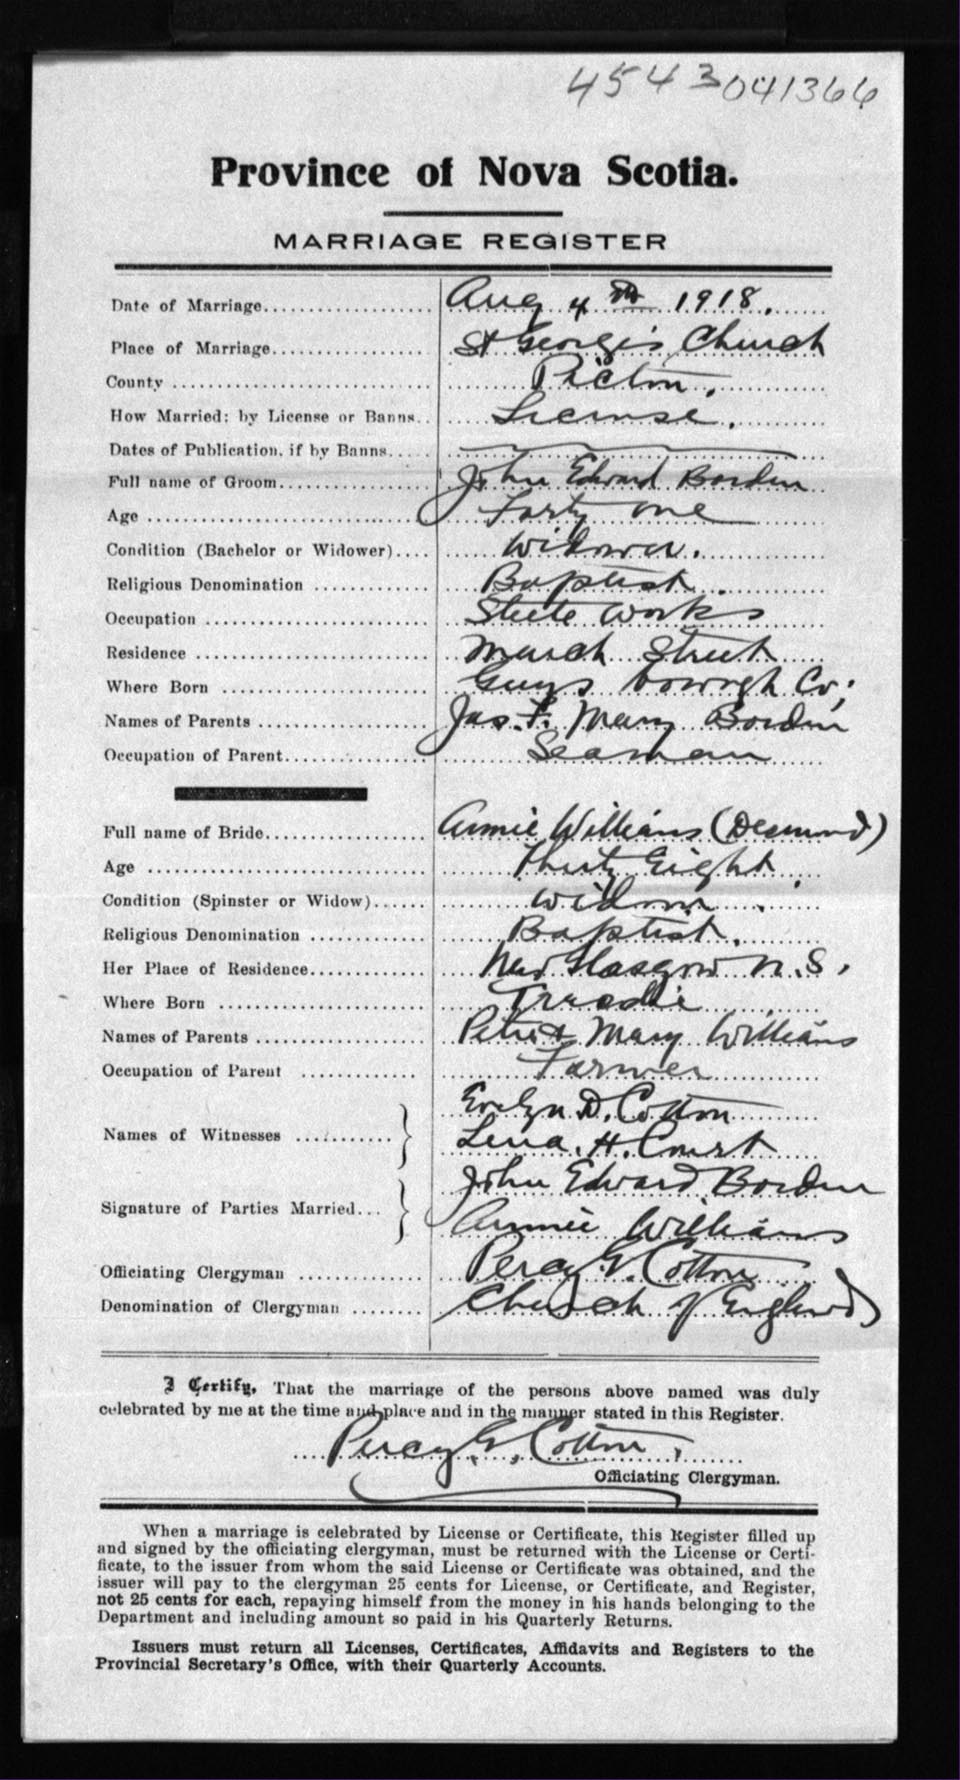 4543 041366
Province of Nova Scotia.
MARRIAGE REGISTER
Date of Marriage Aug 4th 1918.
Place of Marriage St George's Church
County Pictou.
How Married: by License or Banns License.
Dates of Publication, if by Banns
Full name of Groom John Edward Borden
Age Forty one
Condition (Bachelor or Widower) Widower.
Religious Denomination Baptist.
Occupation Steele Works
Residence March Street
Where Born Guysborough Co;
Names of Parents Jas. F. Mary Borden
Occupation of Parent Seaman
Full name of Bride Annie Williams (Desmond)
Age Thirty Eight
Condition (Spinster or Widow) Widow
Religious Denomination Baptist.
Her Place of Residence New Glasgow N.S.
Where Born Tracadie
Names of Parents Peter & Mary Williams
Occupation of Parent Farmer
Names of Witnesses Evelyn D. Cotton
Lena. H. Court
Signature of Parties Married John Edward Borden
Annie Williams
Officiating Clergyman Percy G. Cotton
Denomination of Clergyman Church of England
I Certify, That the marriage of the persons above named was duly
celebrated by me at the time and place and in the manner stated in this Register.
Percy G. Cotton.
Officiating Clergyman.
When a marriage is celebrated by License or Certificate, this Register filled up
and signed by the officiating clergyman, must be returned with the License or Certi-
ficate, to the issuer from whom the said License or Certificate was obtained, and the
issuer will pay to the clergyman 25 cents for License, or Certificate, and Register,
not 25 cents for each, repaying himself from the money in his hands belonging to the
Department and including amount so paid in his Quarterly Returns.
Issuers must return all Licenses, Certificates, Affidavits and Registers to the
Provincial Secretary's Office, with their Quarterly Accounts.